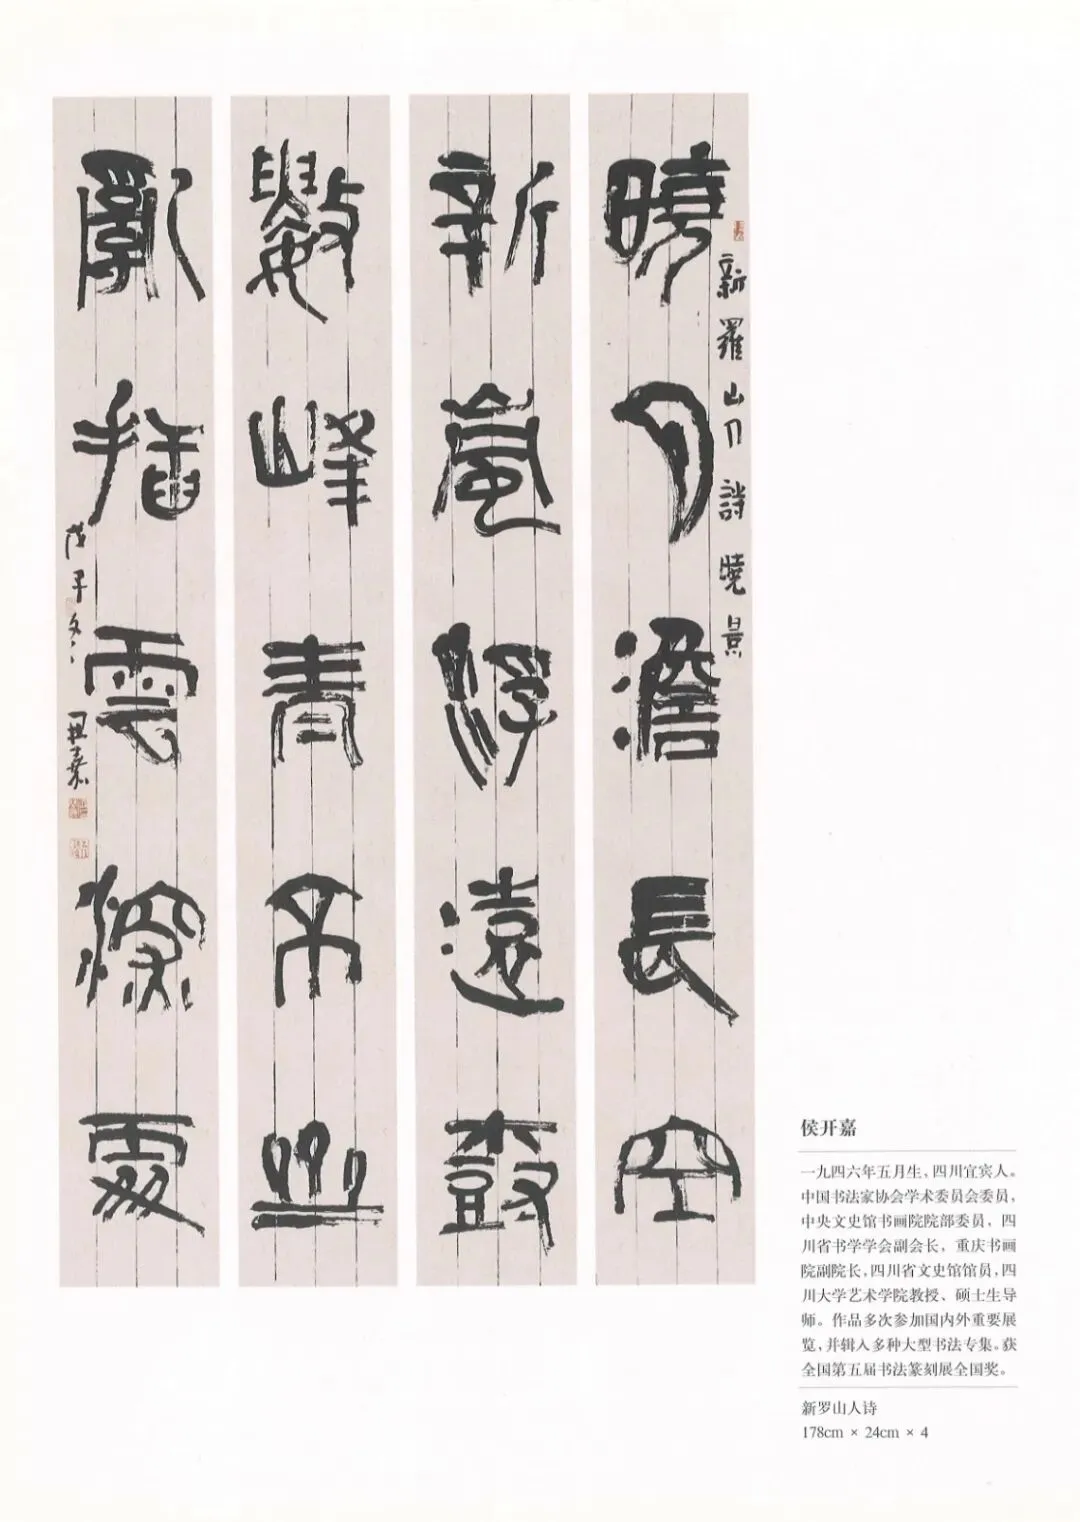 曉月澹長空
新嵐浮遠樹
數峰青不齊
亂插雲深處
新羅山人詩曉景
戊子冬 開嘉
侯开嘉
一九四六年五月生，四川宜宾人。
中国书法家协会学术委员会委员，
中央文史馆书画院院部委员，四
川省书学学会副会长，重庆书画
院副院长，四川省文史馆馆员，四
川大学艺术学院教授、硕士生导
师。作品多次参加国内外重要展
览，并辑入多种大型书法专集。获
全国第五届书法篆刻展全国奖。
新罗山人诗
178cm × 24cm × 4